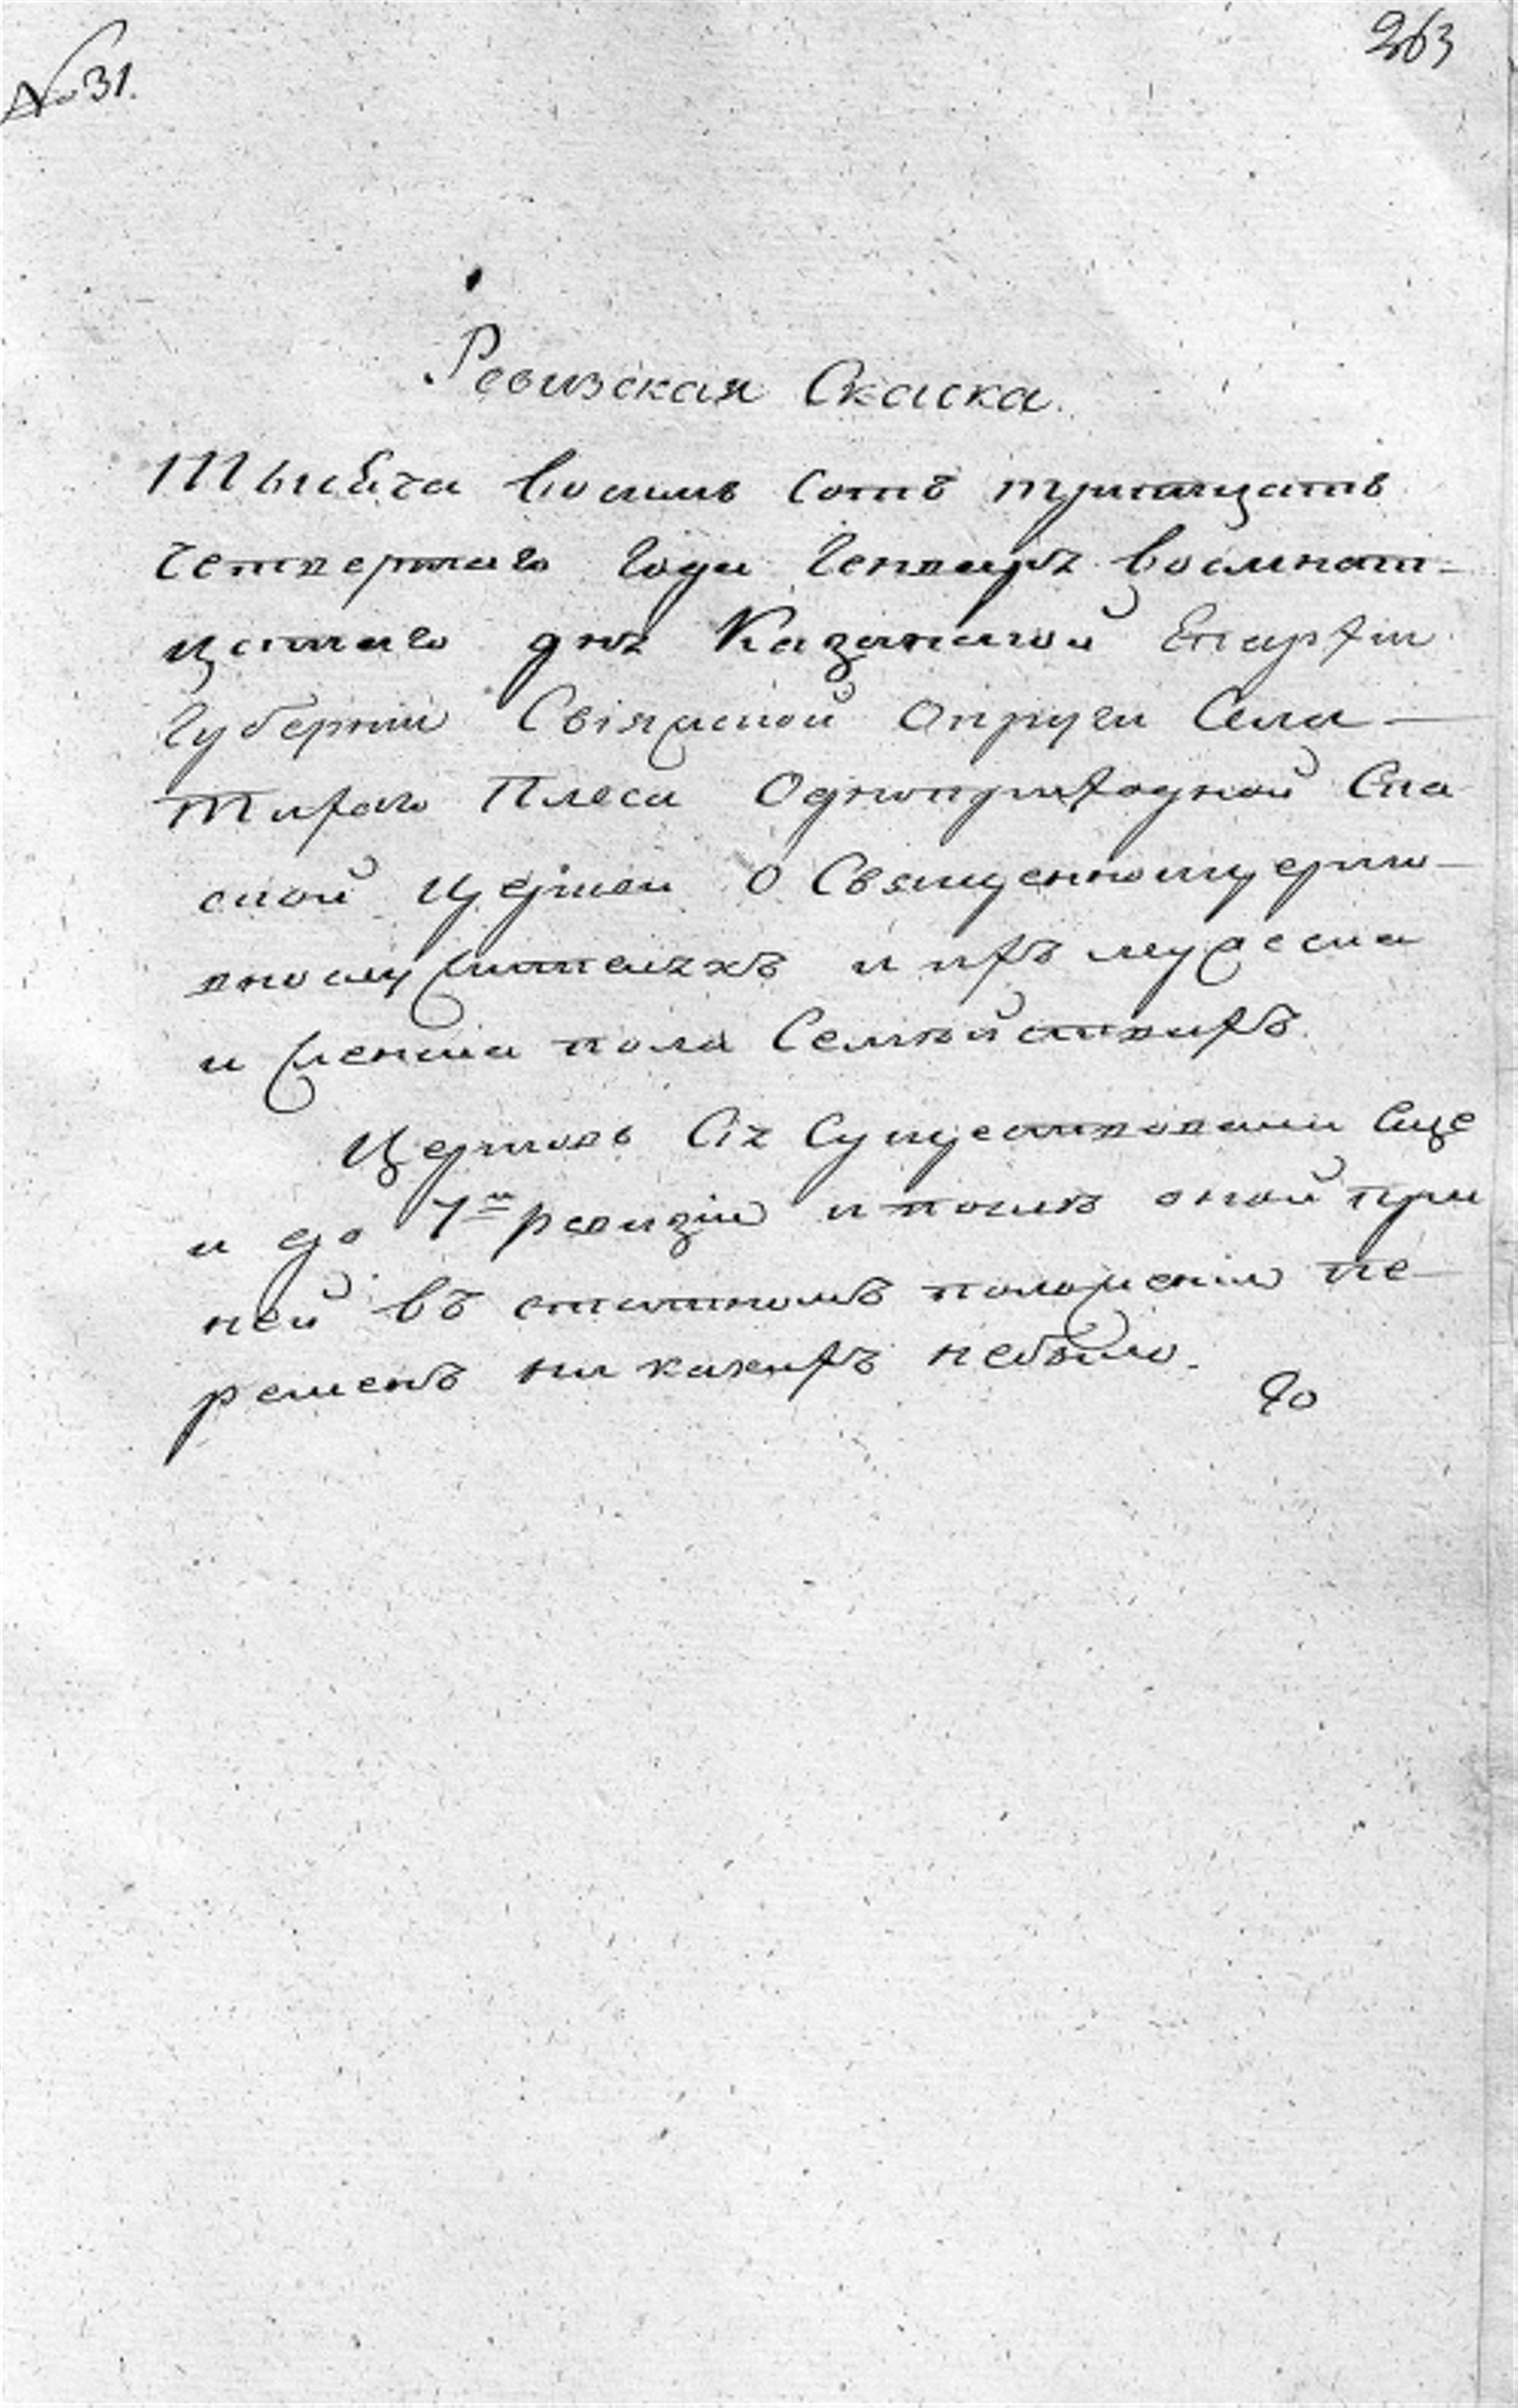 № 31.
263
Ревизская Скаска.
Тысеча восемь сотъ тритцать
четвертаго года Генваря восмнат-
цатаго дня Казанской Епархіи
Губерніи Свіяжской Округи Села
Тихаго Плеса Одноприходной Спа
ской церкви о Священноцерко-
внослужителяхъ и ихъ мужеска
и женска пола Семействахъ.
Церковь Сія Существовала еще
и до 7й ревизіи и после оной при
ней въ статномъ положеніи пе-
ременъ ни какихъ небыло.